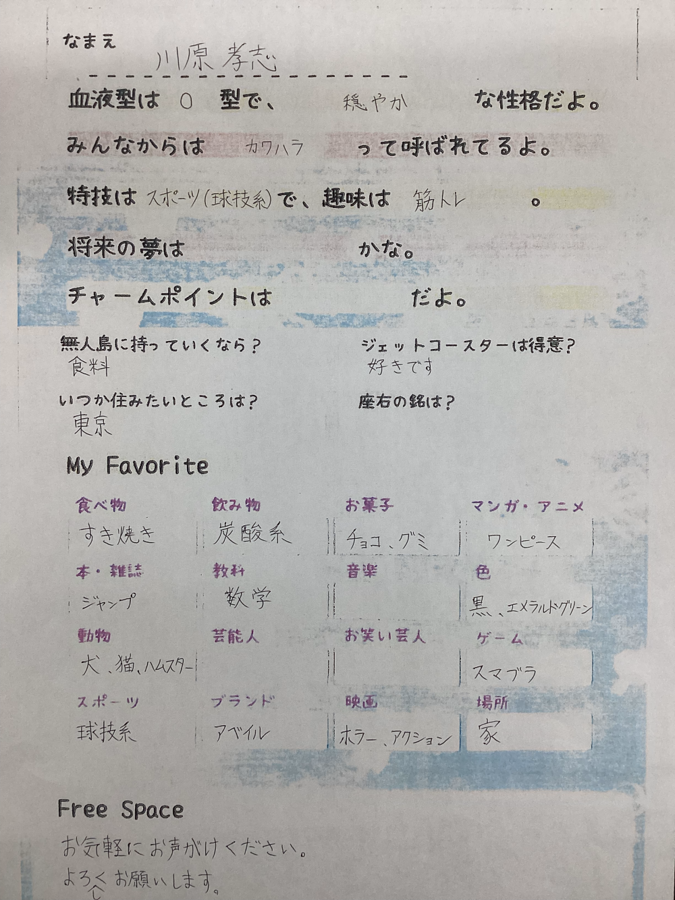 なまえ 川原 孝志
血液型は O 型で、 穏やか な性格だよ。
みんなからは カワハラ って呼ばれてるよ。
特技は スポーツ(球技系)で、趣味は 筋トレ 。
将来の夢は かな。
チャームポイントは だよ。
無人島に持っていくなら? ジェットコースターは得意?
食料 好きです
いつか住みたいところは? 座右の銘は?
東京
My Favorite
食べ物 飲み物 お菓子 マンガ・アニメ
すき焼き 炭酸系 チョコ、グミ ワンピース
本・雑誌 教科 音楽 色
ジャンプ 数学 黒、エメラルドグリーン
動物 芸能人 お笑い芸人 ゲーム
犬、猫、ハムスター スマブラ
スポーツ ブランド 映画 場所
球技系 アベイル ホラー、アクション 家
Free Space
お気軽にお声がけください。
よろしくお願いします。